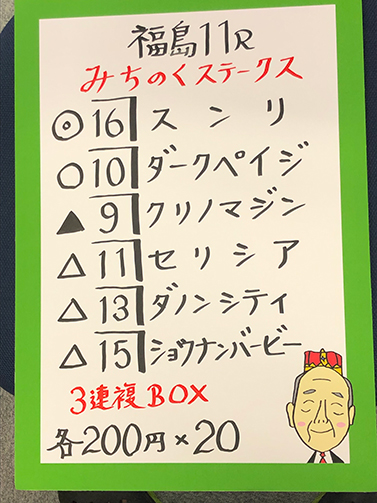 福島11R
みちのくステークス
◎16 スンリ
○10 ダークペイジ
▲9 クリノマジン
△11 セリシア
△13 ダノンシティ
△15 ショウナンバービー
3連複BOX
各200円×20